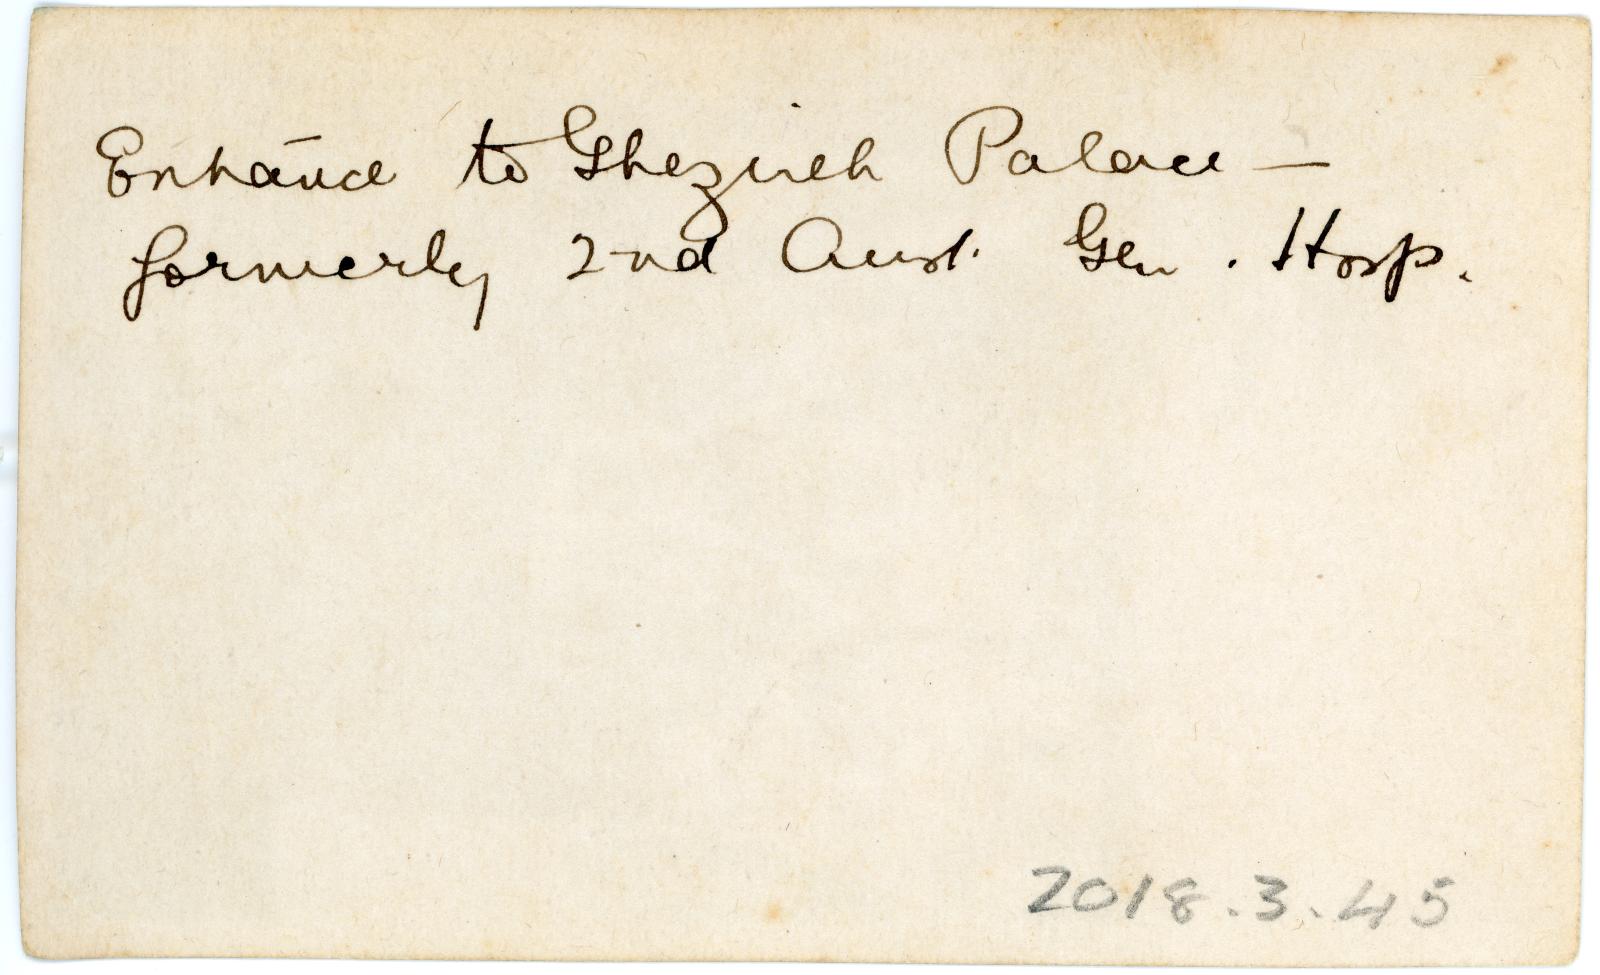 Entrance to Ghezireh Palace —
formerly 2nd Aust. Gen. Hosp.
2018.3.45